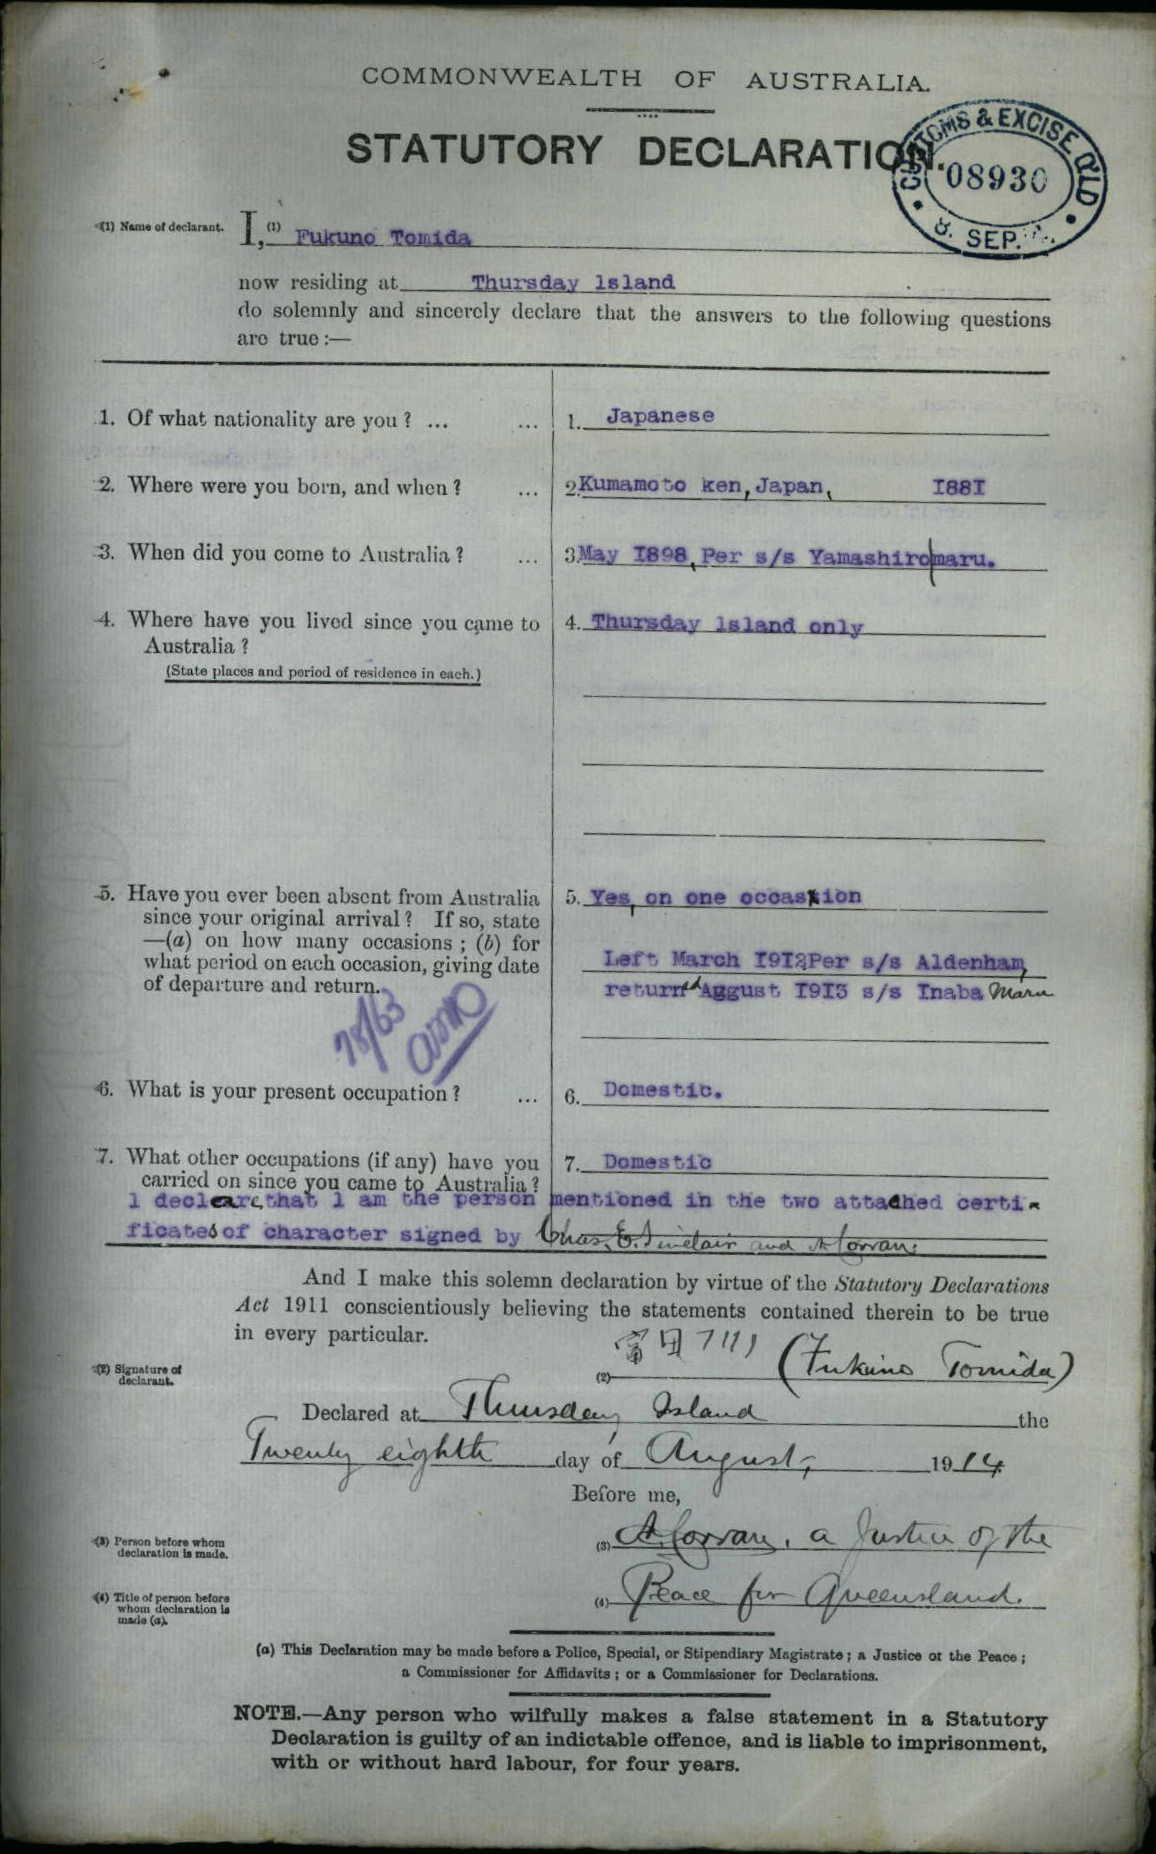 COMMONWEALTH OF AUSTRALIA.
STATUTORY DECLARATION.
CUSTOMS & EXCISE QLD
08930
8. SEP.
(1) Name of declarant. I, (1) Fukuno Tomida
now residing at Thursday lsland
do solemnly and sincerely declare that the answers to the following questions
are true :—
1. Of what nationality are you ? ... ... 1. Japanese
2. Where were you born, and when ? ... 2. Kumamoto ken, Japan, I88I
3. When did you come to Australia ? ... 3. May I898, Per s/s Yamashiro maru.
4. Where have you lived since you came to 4. Thursday lsland only
Australia ?
(State places and period of residence in each.)
5. Have you ever been absent from Australia 5. Yes, on one occasion
since your original arrival ? If so, state
—(a) on how many occasions ; (b) for
what period on each occasion, giving date Left March I9I2 Per s/s Aldenham,
of departure and return. returned August I9I3 s/s Inaba Maru
78/63
6. What is your present occupation ? ... 6. Domestic.
7. What other occupations (if any) have you 7. Domestic
carried on since you came to Australia ?
l declare, that l am the person mentioned in the two attached certi-
ficates of character signed by Chas. E. Sinclair and A Corran.
And I make this solemn declaration by virtue of the Statutory Declarations
Act 1911 conscientiously believing the statements contained therein to be true
in every particular.
(2) Signature of declarant. (2) 富田フ (Fukuno Tomida)
Declared at Thursday Island the
Twenty eighth day of August, 1914
Before me,
(3) Person before whom declaration is made. (3) A. Corran, a Justice of the
(4) Title of person before whom declaration is made (a). (4) Peace for Queensland.
(a) This Declaration may be made before a Police, Special, or Stipendiary Magistrate ; a Justice of the Peace ;
a Commissioner for Affidavits ; or a Commissioner for Declarations.
NOTE.—Any person who wilfully makes a false statement in a Statutory
Declaration is guilty of an indictable offence, and is liable to imprisonment,
with or without hard labour, for four years.